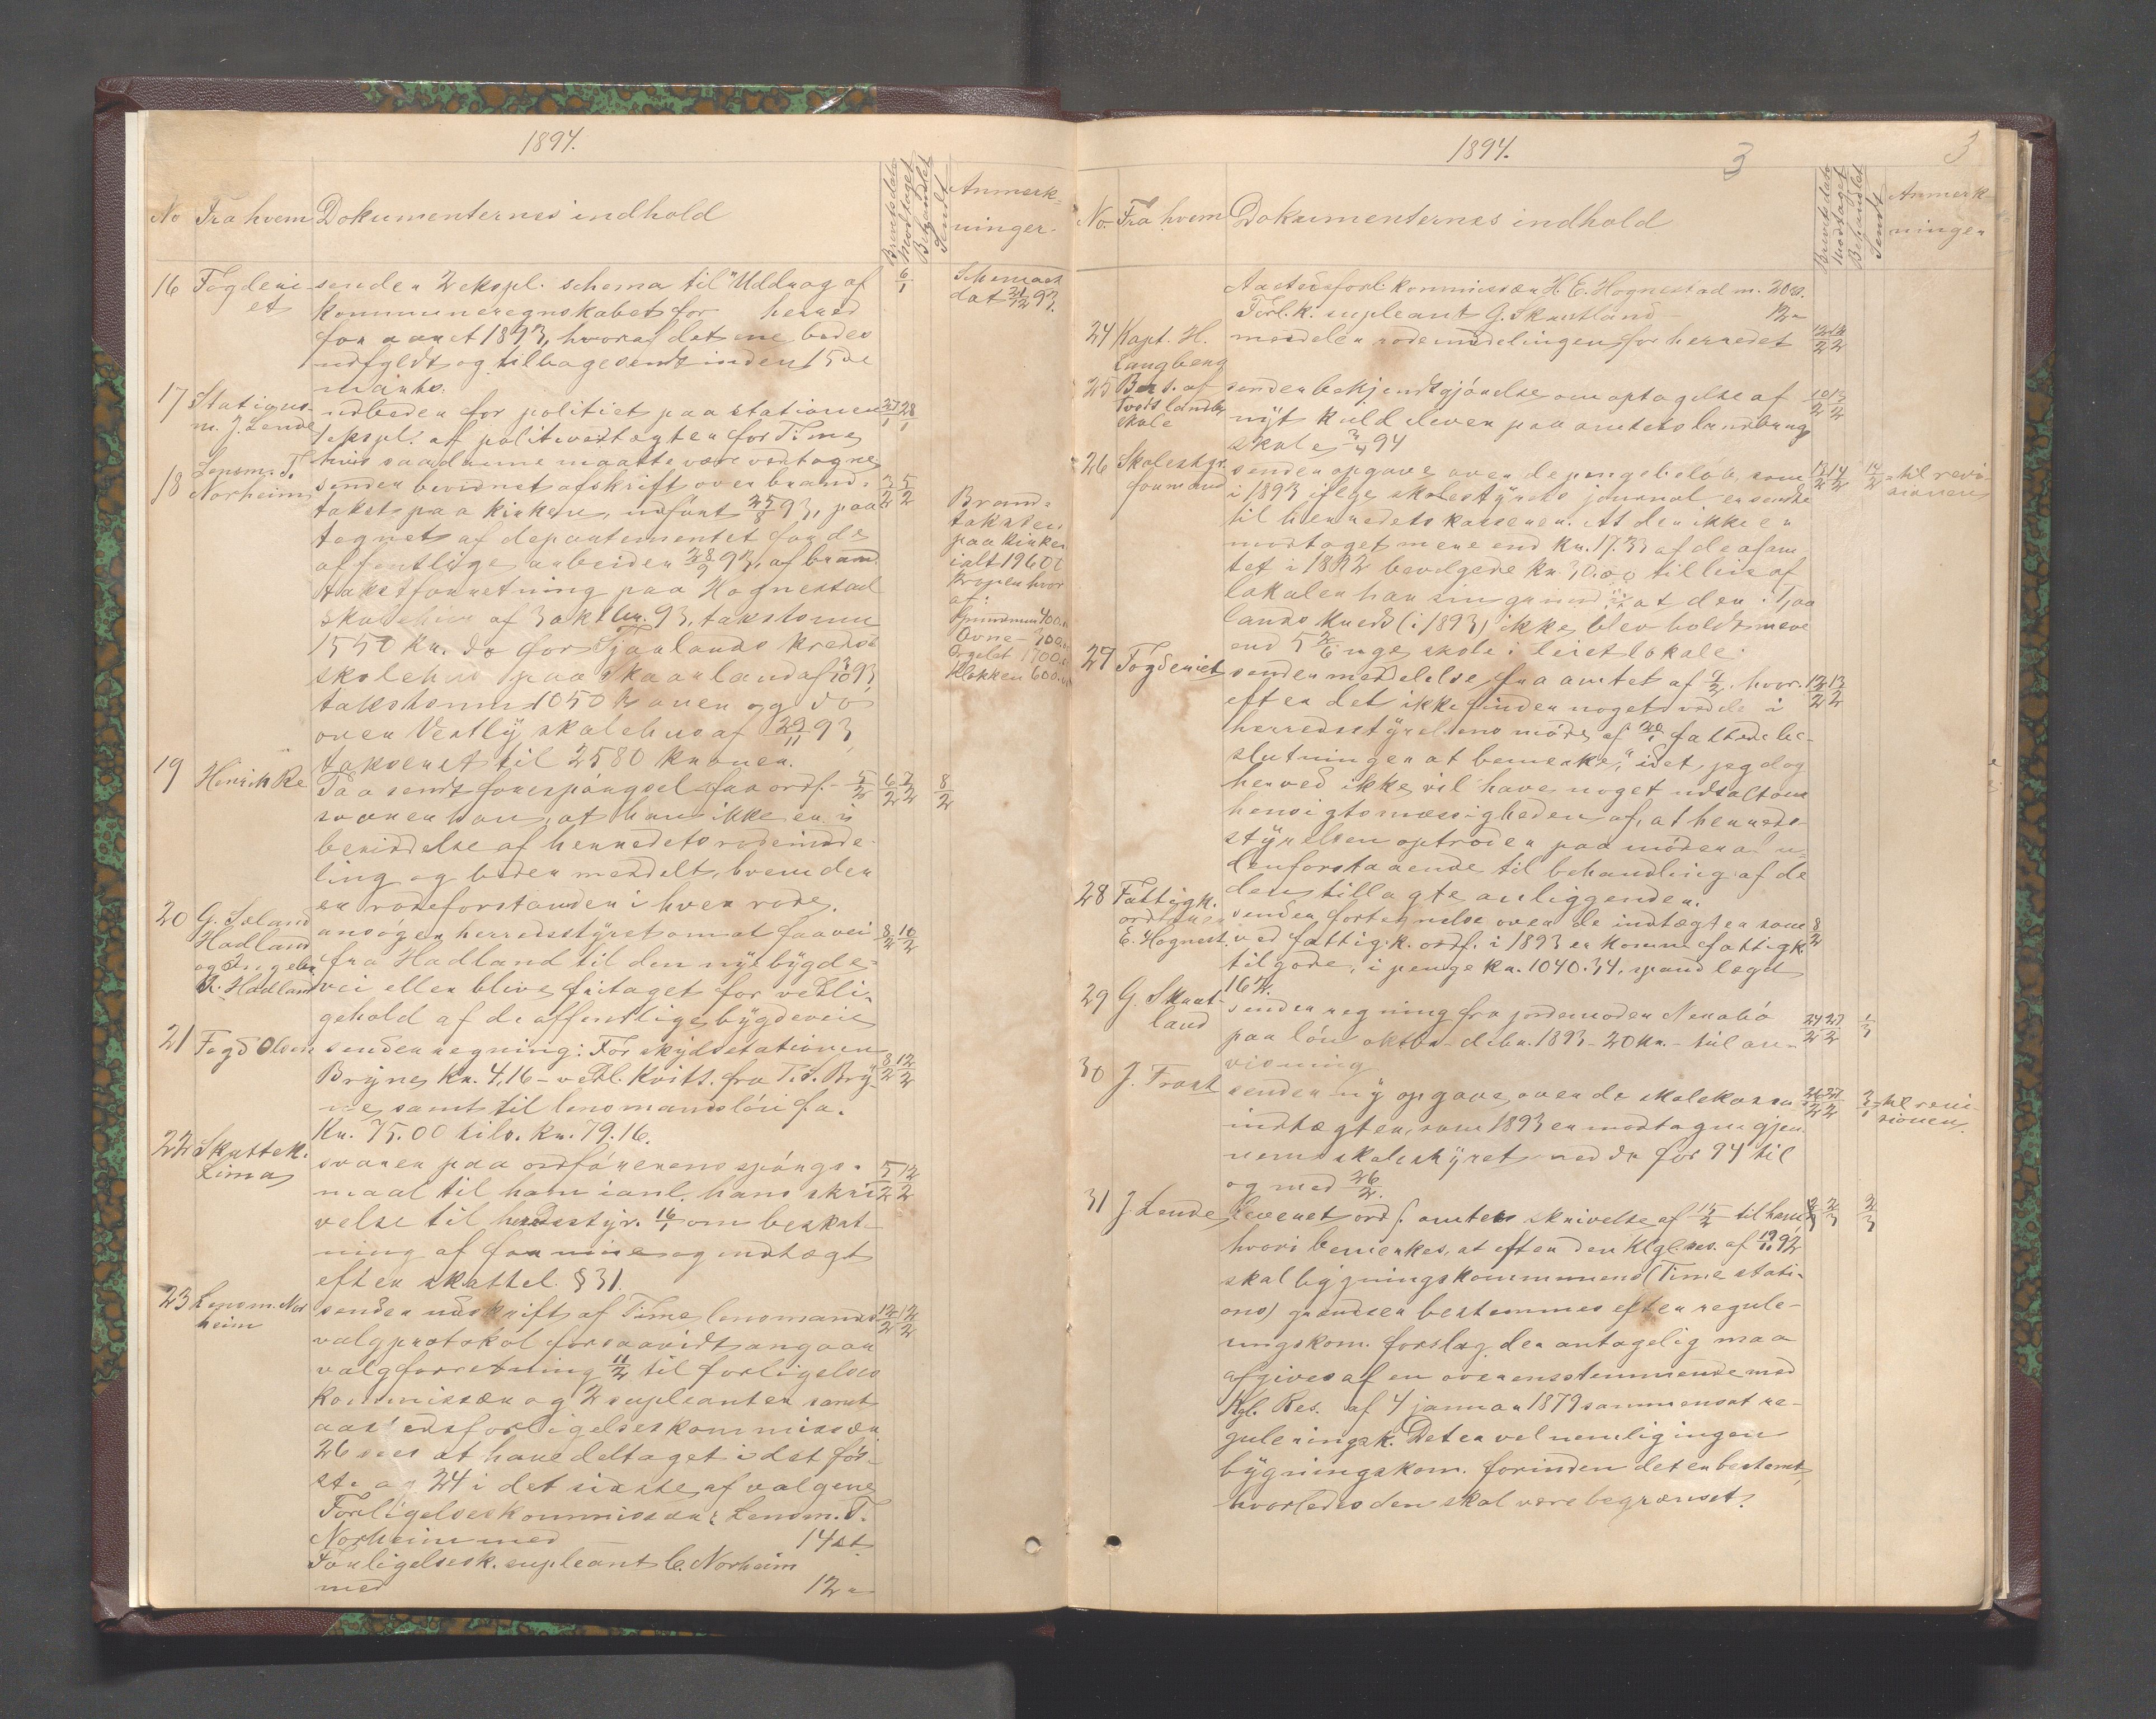 1894.
No Fra hvem Dokumenternes indhold Brevets dato Modtaget Behandlet Sendt Anmerk-
ninger.
16 Fogderi- sender 2 ekspl. schema til "Uddrag af 6/1 Schemaet
et kommuneregnskabet for herred dat 31/12 93.
for aaret 1893, hvoraf det ene bedes
udfyldt og tilbagesendt inden 15de
marts.
17 Stations- udbeder for politiet paa stationen 27/1 28/1
m. J. Lende 1 ekspl. af politivedtægter for Time
hvis saadanne maatte være vedtagne
18 Lensm. T. sender bevidnet afskrift over brand- 3/2 5/2
Norheim takst paa kirken, udført 25/8 93, paa
tegnet af departementet for de
offentlige arbeider 28/9 93, af brand
takstforretning paa Hognestad
skolehus af 3 oktbr. 93, takstsum
1550 kr. do for Tjaalands kreds
skolehus paa Skaarland af 3/10 93,
takstsum 1050 kroner og do
over Vestly skolehus af 29/11 93
takseret til 2580 kroner.
Brand-
taksten
paa kirken
ialt 19600
Kroner hvor
af:
Grundmur 400.
Ovne - 300.
Orgelet 1700.
Klokken 600.
19 Henrik Re Paa sendt forespørgsel fra ordf. 5/2 6/2 7/2 8/2
svarer han, at han ikke er i
besiddelse af herredets rodeindde-
ling og beder meddelt, hvem der
er rodeforstander i hver rode.
20 G. Seland ansøger herredsstyret om at faa vei 8/2 10/2
Hadland fra Hadland til den nye bygde-
og Ingebr. vei eller blive fritaget for vedli-
A. Hadland gehold af de offentlige bygdeveie
21 Fogd Olsen sender regning: For skydsstationen 8/2 12/2
Bryne Kr. 4,16 - vedl. kvitt. fra T. S. Bry-
ne, samt til lensmandsløn f.a.
Kr. 75.00 tils. Kr. 79.16.
22 Skattek. svarer paa ordførerens spørgs- 5/2 12/2
Lima maal til ham i anl. hans skri
velse til herdsstyr. 16/1 om beskat-
ning af formue og indtægt
efter skattel. § 31.
23 Lensm. Nor sender udskrift af Time lensmands 12/2 12/2
heim valgprotokol forsaavidt angaar
valgforretning 11/2 til forligelses
kommissær og 2 supleanter samt
aastedsforligelseskommissær
26 sees at have deltaget i det før-
ste og 24 i det sidste af valgene
Forligelseskommissær: Lensm. T.
Norheim med 14 st.
Forligelsesk. supleant C. Norheim
med 12 "
1894. 3 3
No. Fra hvem Dokumenternes indhold Brevets dato Modtaget Behandlet Sendt Anmerk-
ninger
Aastedsforl. kommissær H. E. Hognestad m. 20 st.
Forl. k. supleant G. Skaatland 12 "
24 Kapt. H. meddeler rodeinddelingen for herredet 12/2 12/2
Langberg
25 Best. af sender bekjendtgjørelse om optagelse af 10/2 13/2
landbr. nyt kuld elever paa amtets landbrugs
skole skole 3/4 94
26 Skolestyr. sender opgave over de pengebeløb, som 13/2 14/2 14/2 = til revi-
formand i 1893 ifølge skolestyrets journal er sendte sionen
til herredets kasserer. At der ikke er
modtaget mere end Kr. 17.33 af de af am
tet i 1892 bevilgede Kr 30.00 til leie af
lokaler har sin grund i at der i Tjaa
lands kreds (i 1893) ikke blev holdt mere
end 5 2/6 uge skole i leiet lokale.
27 Fogderiet sender meddelelse fra amtet af 7/2, hvor- 12/2 13/2
efter det ikke finder noget ved de i
herredsstyrelsens møde af 20/1 fattede be-
slutninger at bemerke, "idet jeg dog
herved ikke vil have noget udsalt om
hensigtsmæssigheden af, at herreds-
styrelsen optræder paa møder
denforstaaende til behandling af de
den tillagte anliggender.
28 Fattigk. sender fortegnelse over de indtægter som 8/2
ordfører ved fattig. k. ordf. i 1893 er komme fattigk.
E. Hognest. tilgode, i penge kr. 1040.34, samt lægd
16 kr.
29 G. Skaat- sender regning fra jordemoder Nerabø 24/2 27/2 1/3
land paa løn oktbr - debr. 1893 - 20 kr. - til an-
visning
30 J. Fraat sender ny opgave over de skolekasse 26/2 27/2 3/1 til revi-
indtægter, som 1893 er modtagne gjen sionen.
nem skolestyret ned da for 94 til
og med 26/2.
31 J. Lende leveret ordf. amtets skrivelse af 15/2 til ham 2/3 2/3 2/3
hvori bemerkes, at efter den Kgl. res. af 19/11 92
skal bygningskommunens (Time stati-
ons) grændser bestemmes efter regule-
ringskom. forslag der antagelig maa
afgives af en overensstemmende med
Kgl. Res. af 4 januar 1879 sammensat re-
guleringsk. Det er vel nemlig ingen
bygningskom. forinden det er bestemt,
hvorledes den skal være begrænset?